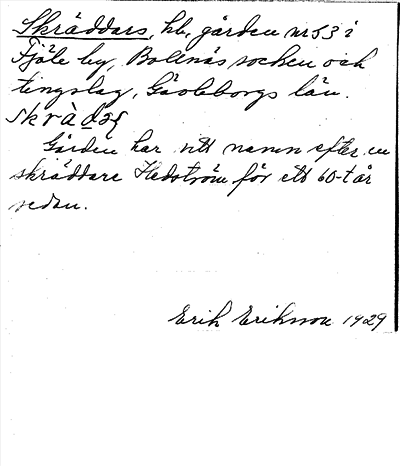 Skräddars, hb, gården nr 53 i
Fjäle by, Bollnäs socken och
tingslag, Gävleborgs län.
skràdaʂ
Gården har sitt namn efter en
skräddare Hedström för ett 60-tal år
sedan.
Erik Eriksson 1929